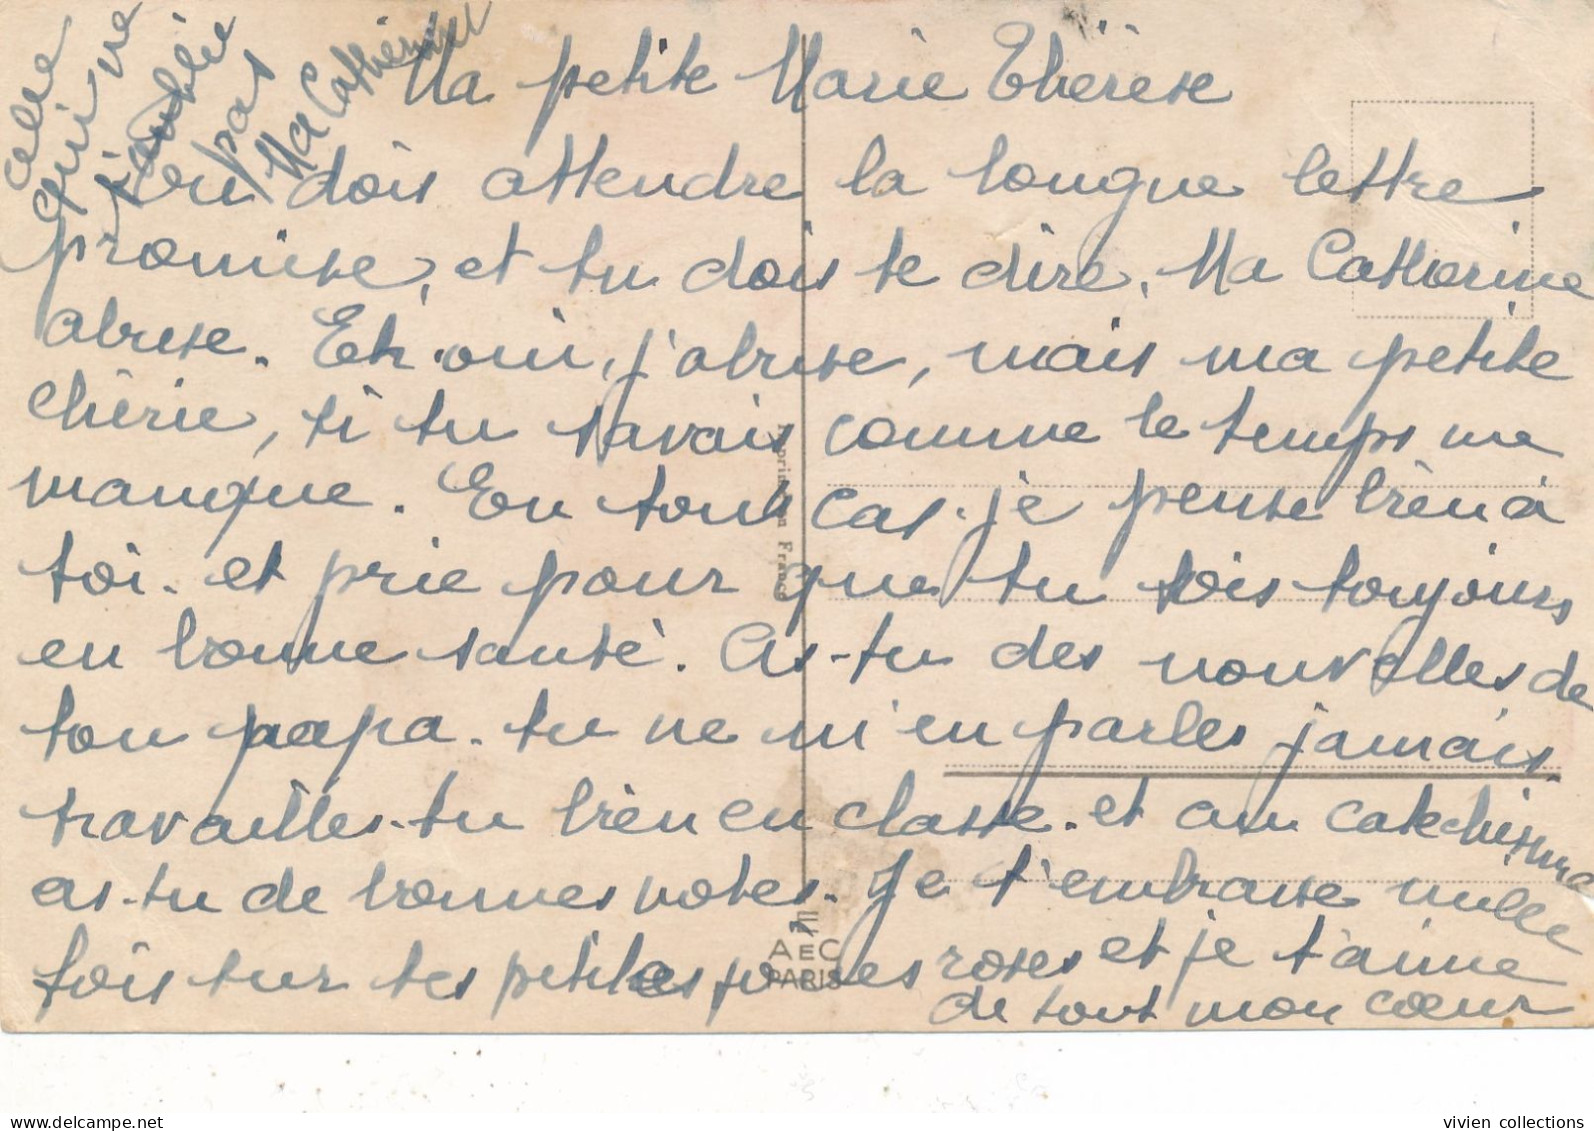 Ma petite Marie Thérèse
Tu dois attendre la longue lettre
promise, et tu dois te dire, Ma Catherine
abuse. Eh oui, j'abuse, mais ma petite
chérie, si tu savais comme le temps me
manque. En tout cas je pense bien à
toi. et prie pour que tu sois toujours
en bonne santé. As-tu des nouvelles de
ton papa. tu ne m'en parles jamais.
travailles-tu bien en classe. et au catechisme
as-tu de bonnes notes. Je t'embrasse mille
fois sur tes petites joues roses et je t'aime
de tout mon cœur
celle
qui ne
t'oublie
pas
Ma Catherine
Imprimé en France
AEC
PARIS
vivien collections